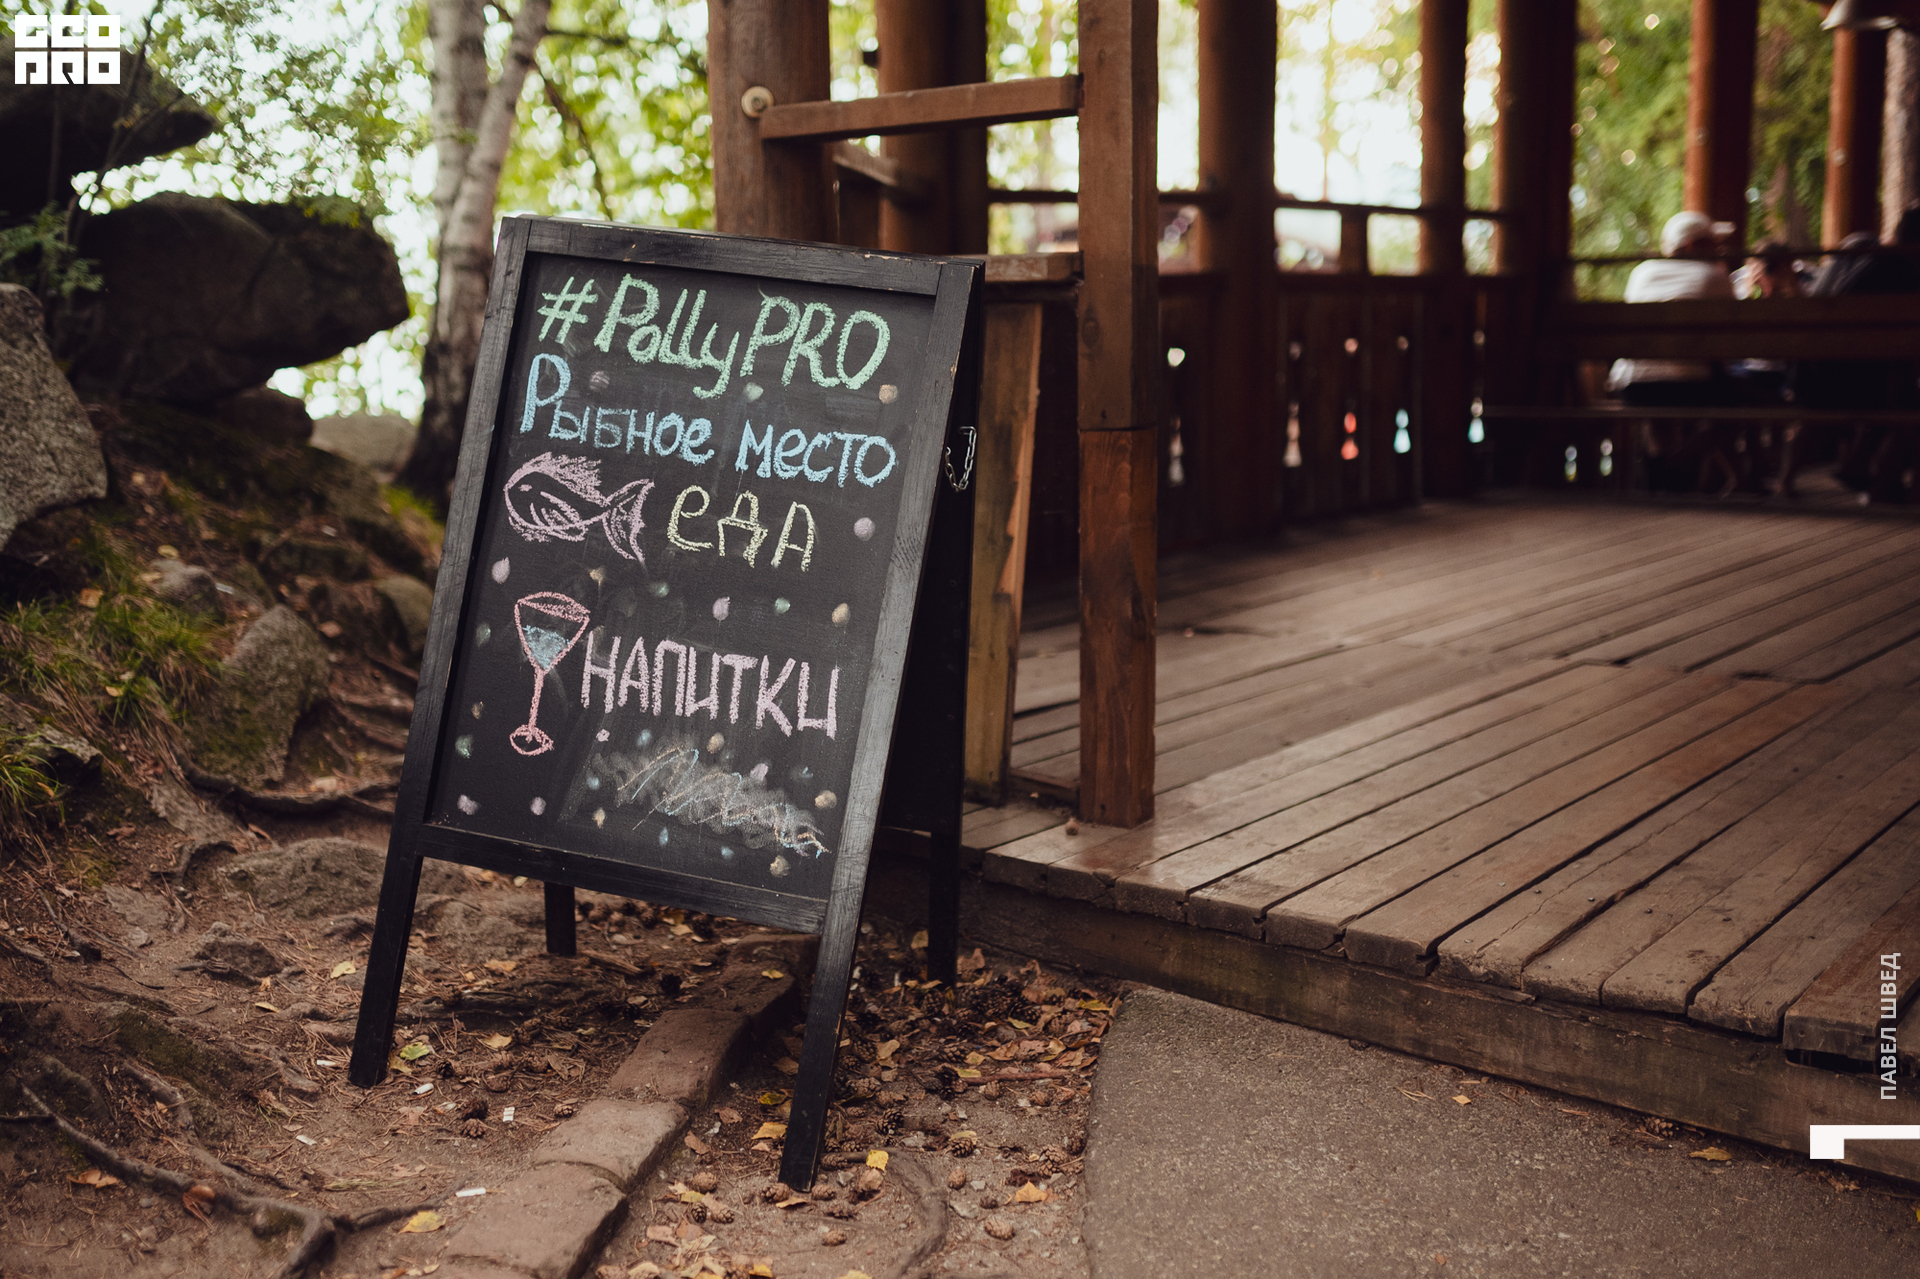 GEO
PRO
#PollyPRO
Рыбное место
еда
НАПИТКИ
ПАВЕЛ ШВЕД